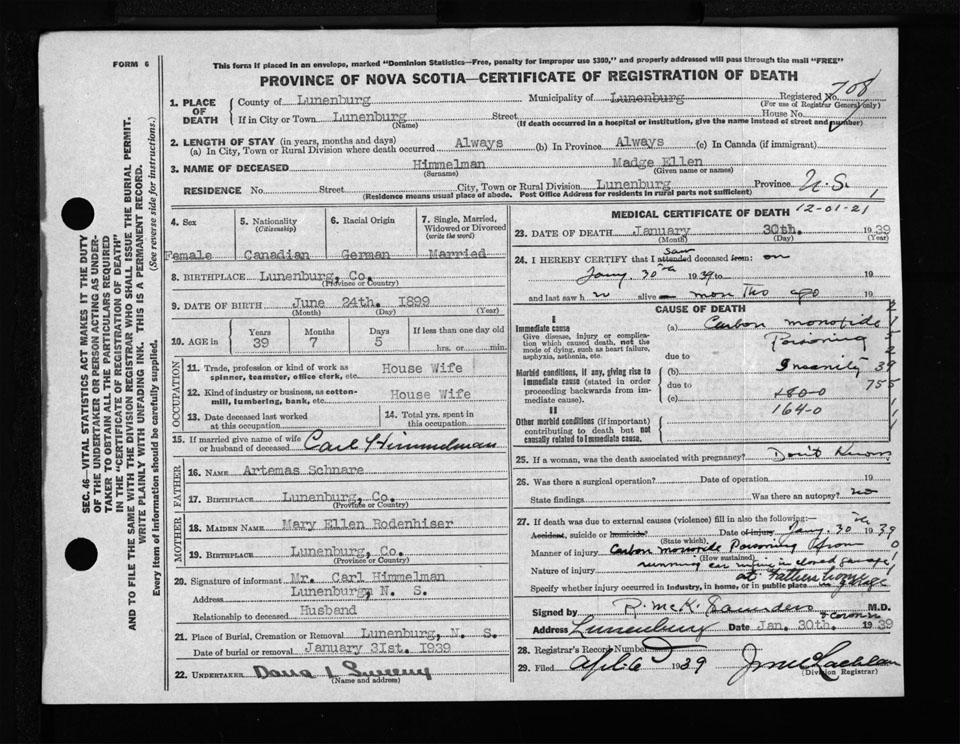 FORM 6
This form if placed in an envelope, marked "Dominion Statistics—Free, penalty for improper use $300," and properly addressed will pass through the mail "FREE"
PROVINCE OF NOVA SCOTIA—CERTIFICATE OF REGISTRATION OF DEATH
SEC. 46—VITAL STATISTICS ACT MAKES IT THE DUTY
OF THE UNDERTAKER OR PERSON ACTING AS UNDER-
TAKER TO OBTAIN ALL THE PARTICULARS REQUIRED
IN THE "CERTIFICATE OF REGISTRATION OF DEATH"
AND TO FILE THE SAME WITH THE DIVISION REGISTRAR WHO SHALL ISSUE THE BURIAL PERMIT.
WRITE PLAINLY WITH UNFADING INK. THIS IS A PERMANENT RECORD.
Every item of information should be carefully supplied. (See reverse side for instructions.)
1. PLACE OF DEATH
County of Lunenburg Municipality of Lunenburg Registered No. 708
(For use of Registrar General only)
If in City or Town Lunenburg Street House No.
(Name) (If death occurred in a hospital or institution, give the name instead of street and number)
2. LENGTH OF STAY (in years, months and days)
(a) In City, Town or Rural Division where death occurred Always (b) In Province Always (c) In Canada (if immigrant)
3. NAME OF DECEASED Himmelman Madge Ellen
(Surname) (Given name or names)
RESIDENCE No. Street City, Town or Rural Division Lunenburg Province N.S.
(Residence means usual place of abode. Post Office Address for residents in rural parts not sufficient)
4. Sex 5. Nationality (Citizenship) 6. Racial Origin 7. Single, Married, Widowed or Divorced (write the word)
Female Canadian German Married
8. BIRTHPLACE Lunenburg, Co.
(Province or Country)
9. DATE OF BIRTH June 24th. 1899
(Month) (Day) (Year)
10. AGE in Years Months Days If less than one day old
39 7 5 hrs. or min.
OCCUPATION
11. Trade, profession or kind of work as spinner, teamster, office clerk, etc. House Wife
12. Kind of industry or business, as cotton-mill, lumbering, bank, etc. House Wife
13. Date deceased last worked at this occupation 14. Total yrs. spent in this occupation
15. If married give name of wife or husband of deceased Carl Himmelman
FATHER
16. NAME Artemas Schnare
17. BIRTHPLACE Lunenburg, Co.
(Province or Country)
MOTHER
18. MAIDEN NAME Mary Ellen Rodenhiser
19. BIRTHPLACE Lunenburg, Co.
(Province or Country)
20. Signature of informant Mr. Carl Himmelman
Address Lunenburg, N. S.
Relationship to deceased Husband
21. Place of Burial, Cremation or Removal Lunenburg, N. S.
Date of burial or removal January 31st. 1939
22. UNDERTAKER
(Name and address)
MEDICAL CERTIFICATE OF DEATH 12-01-21
23. DATE OF DEATH January 30th. 1939
(Month) (Day) (Year)
24. I HEREBY CERTIFY that I attended saw deceased from: on
Jany. 30th 1939 to 19
and last saw h alive months ago 19
CAUSE OF DEATH
I
Immediate cause
Give disease, injury or complication which caused death, not the mode of dying, such as heart failure, asphyxia, asthenia, etc.
(a) Carbon monoxide Poisoning
due to
Morbid conditions, if any, giving rise to immediate cause (stated in order proceeding backwards from immediate cause).
(b) Insanity 39
due to 755
(c) 180-0
164-0
II
Other morbid conditions (if important) contributing to death but not causally related to immediate cause.
25. If a woman, was the death associated with pregnancy? Don't Know
26. Was there a surgical operation? Date of operation 19
State findings Was there an autopsy? no
27. If death was due to external causes (violence) fill in also the following:—
Accident, suicide or homicide? Date of injury Jany. 30th 1939
(State which).
Manner of injury Carbon monoxide Poisoning from
(How sustained)
Nature of injury running car in closed garage
Specify whether injury occurred in industry, in home, or in public place at Father's garage
Signed by R. McK. Saunders M.D.
& Coroner
Address Lunenburg Date Jan. 30th. 1939
28. Registrar's Record Number
29. Filed April 6 1939
(Division Registrar)